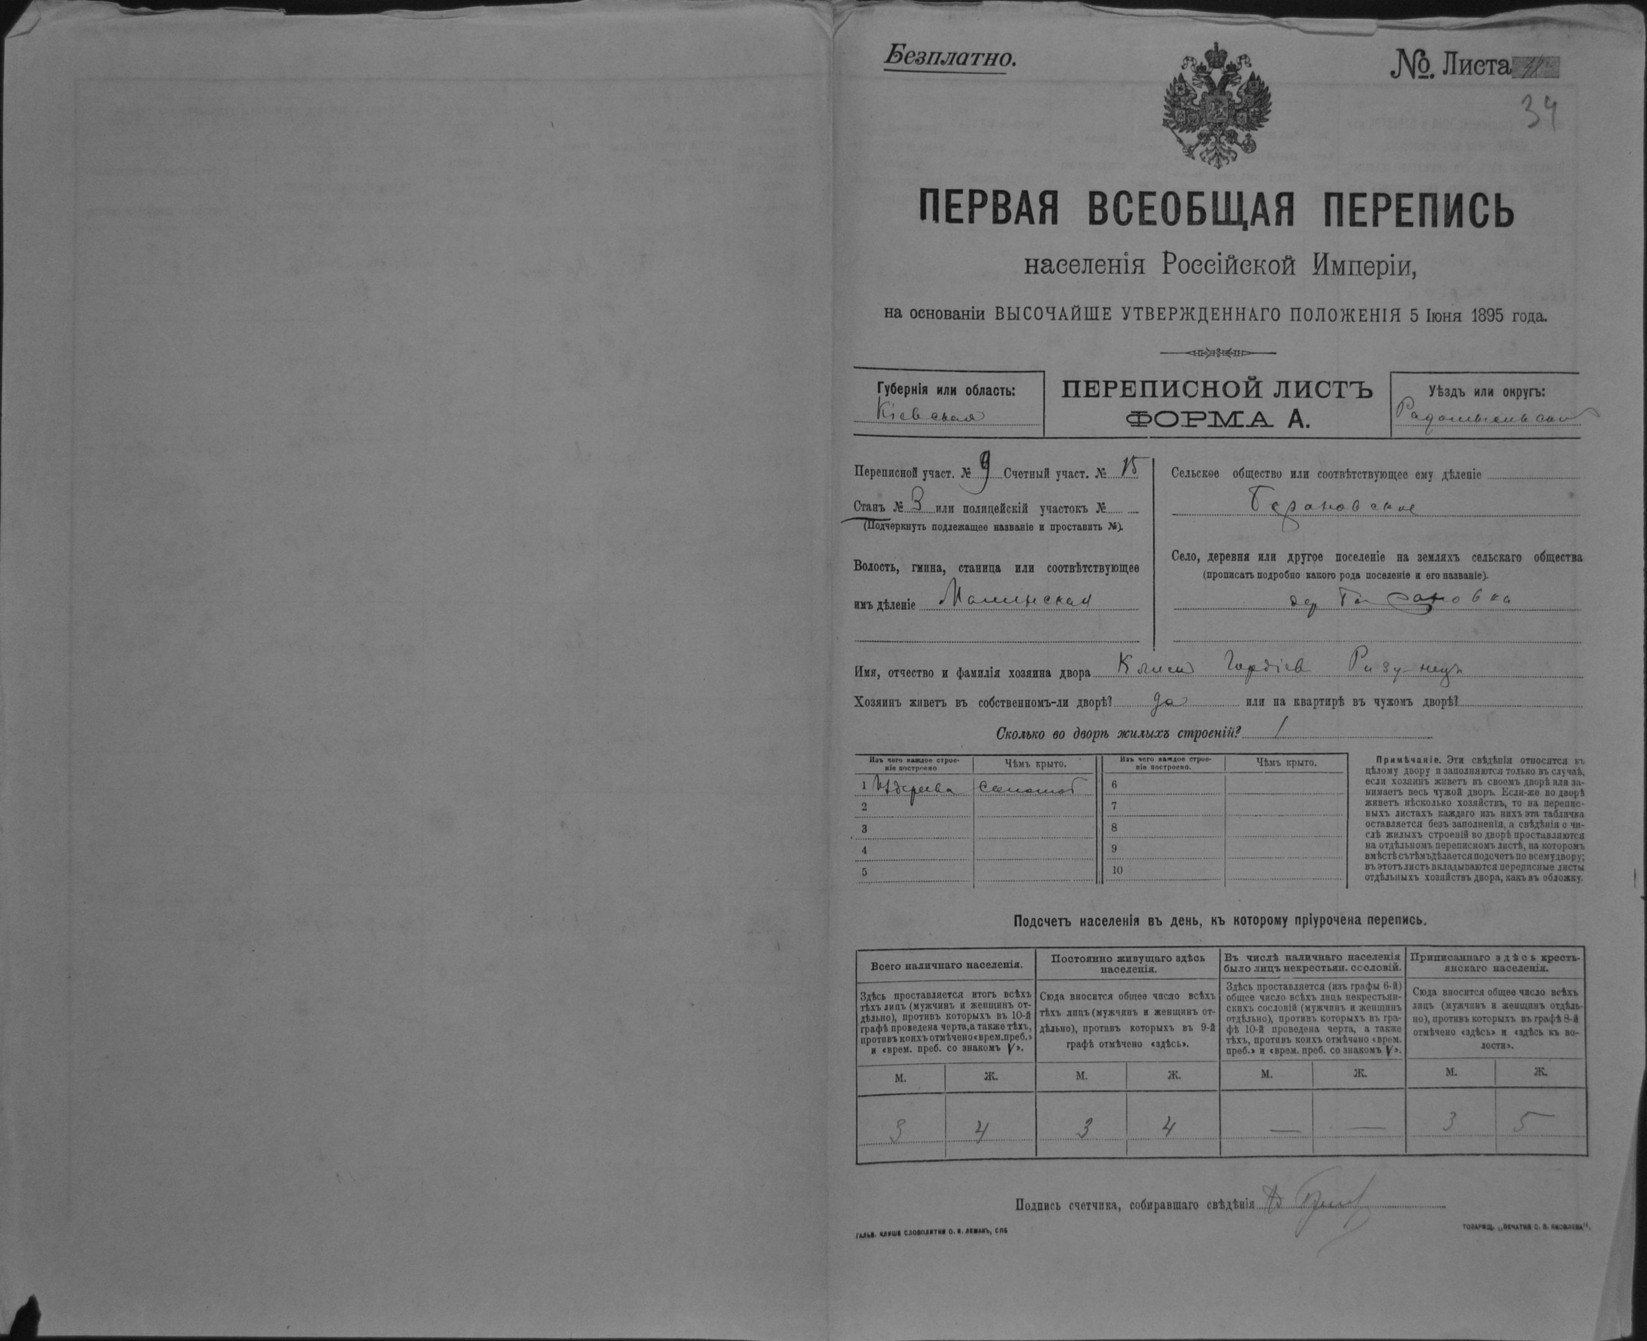 Безплатно.
№. Листа
34
ПЕРВАЯ ВСЕОБЩАЯ ПЕРЕПИСЬ
населенія Россійской Имперіи,
на основаніи ВЫСОЧАЙШЕ УТВЕРЖДЕННАГО ПОЛОЖЕНІЯ 5 Іюня 1895 года.
Губернія или область:
Кіевская
ПЕРЕПИСНОЙ ЛИСТЪ
ФОРМА А.
Уѣздъ или округъ:
Переписной участ. № 9 Счетный участ. № 15
Станъ № 3 или полицейскій участокъ №
(Подчеркнуть подлежащее названіе и проставить №).
Волость, гмина, станица или соотвѣтствующее
имъ дѣленіе Малинская
Сельское общество или соотвѣтствующее ему дѣленіе
Село, деревня или другое поселеніе на земляхъ сельскаго общества
(прописать подробно какого рода поселеніе и его названіе).
дер
Имя, отчество и фамилія хозяина двора Климъ Гордіевъ
Хозяинъ живетъ въ собственномъ-ли дворѣ? да или на квартирѣ въ чужомъ дворѣ?
Сколько во дворѣ жилыхъ строеній? 1
Изъ чего каждое строе-
ніе построено
Чѣмъ крыто.
Изъ чего каждое строе-
ніе построено.
Чѣмъ крыто.
1 Изъ дерева соломой
2
3
4
5
6
7
8
9
10
Примѣчаніе. Эти свѣдѣнія относятся къ
цѣлому двору и заполняются только въ случаѣ,
если хозяинъ живетъ въ своемъ дворѣ или за-
нимаетъ весь чужой дворъ. Если-же во дворѣ
живетъ нѣсколько хозяйствъ, то на перепис-
ныхъ листахъ каждаго изъ нихъ эта табличка
оставляется безъ заполненія, а свѣдѣнія о чи-
слѣ жилыхъ строеній во дворѣ проставляются
на отдѣльномъ переписномъ листѣ, на которомъ
вмѣстѣ съ тѣмъ дѣлается подсчетъ по всему двору;
въ этотъ листъ вкладываются переписные листы
отдѣльныхъ хозяйствъ двора, какъ въ обложку.
Подсчетъ населенія въ день, къ которому пріурочена перепись.
Всего наличнаго населенія.
Здѣсь проставляется итогъ всѣхъ
тѣхъ лицъ (мужчинъ и женщинъ от-
дѣльно), противъ которыхъ въ 10-й
графѣ проведена черта, а также тѣхъ,
противъ коихъ отмѣчено «врем. преб.»
и «врем. преб. со знакомъ V».
Постоянно живущаго здѣсь
населенія.
Сюда вносится общее число всѣхъ
тѣхъ лицъ (мужчинъ и женщинъ от-
дѣльно), противъ которыхъ въ 9-й
графѣ отмѣчено «здѣсь».
Въ числѣ наличнаго населенія
было лицъ некрестьян. сословій.
Здѣсь проставляется (изъ графы 6-й)
общее число всѣхъ лицъ некрестьян-
скихъ сословій (мужчинъ и женщинъ
отдѣльно), противъ которыхъ въ гра-
фѣ 10-й проведена черта, а также
тѣхъ, противъ коихъ отмѣчено «врем.
преб.» и «врем. преб. со знакомъ V».
Приписаннаго здѣсь кресть-
янскаго населенія.
Сюда вносится общее число всѣхъ
лицъ (мужчинъ и женщинъ отдѣль-
но), противъ которыхъ въ графѣ 8-й
отмѣчено «здѣсь» и «здѣсь къ во-
лости».
М. Ж. М. Ж. М. Ж. М. Ж.
3 4 3 4 — — 3 5
Подпись счетчика, собиравшаго свѣдѣнія
ГАЛЬВ. КЛИШЕ СЛОВОЛИТНИ О. И. ЛЕМАНЪ, СПБ
ТОВАРИЩ. „ПЕЧАТНЯ С. П. ЯКОВЛЕВА“.